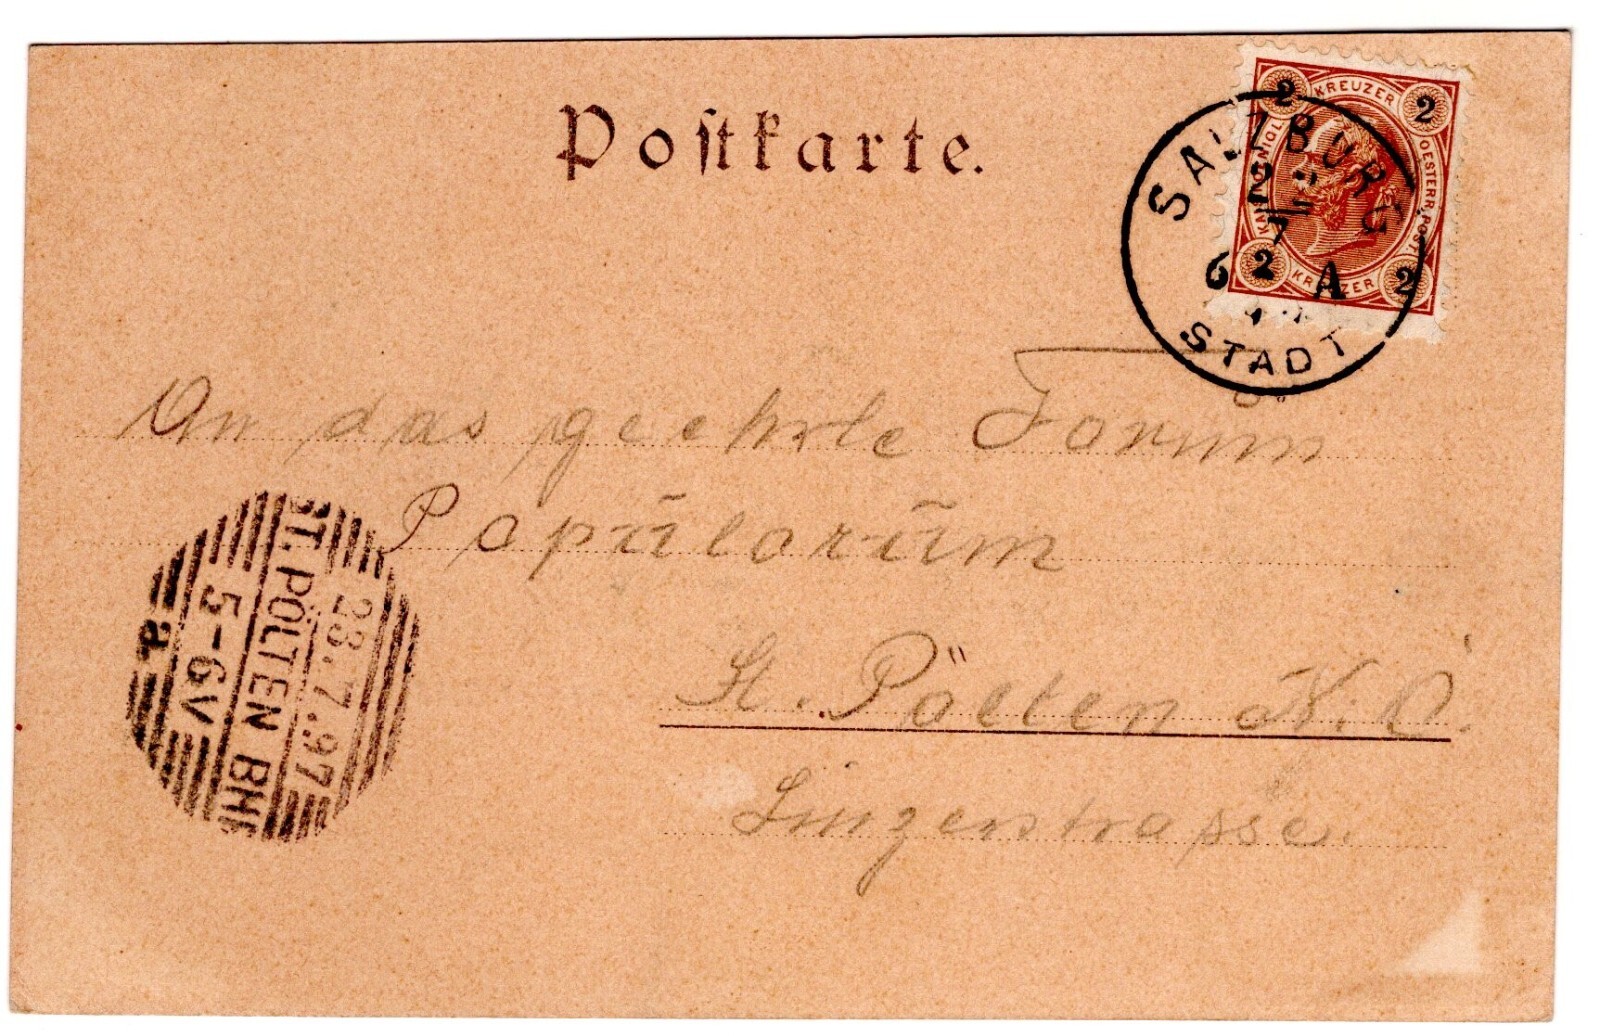 Poſtkarte.
KREUZER
2 2
KAIS. KÖNIGL. OESTERR. POST.
2 2
KREUZER
SALZBURG
7
6 A
STADT
An das geehrte Forum
Popülorüm
St. Pölten N. Ö.
Linzerstrasse.
ST. PÖLTEN BHF
28.7.97
5-6V
a